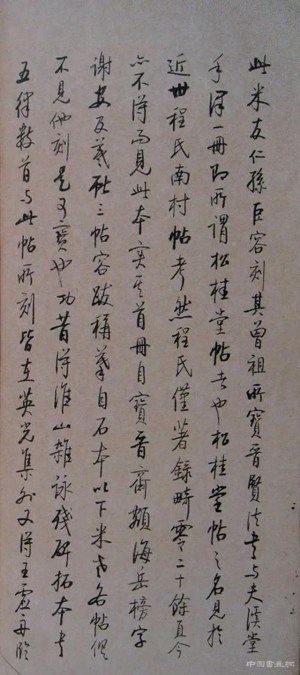 此米友仁孫巨容刻其曾祖所寶晉賢法書与夫溪堂
手澤一冊即所謂松桂堂帖者也松桂堂帖之名見於
近世程氏南村帖考然程氏僅著錄畸零二十餘頁今
亦不得而見此本實其首冊自寶晉齋額海岳榜字
謝安及羲獻三帖容跋稱摹自石本以下米書各帖俱
不見他刻尤可寶也功昔得淮山雜詠殘碑拓本有
五律數首与此帖所刻皆在英光集外又得王虛舟臨